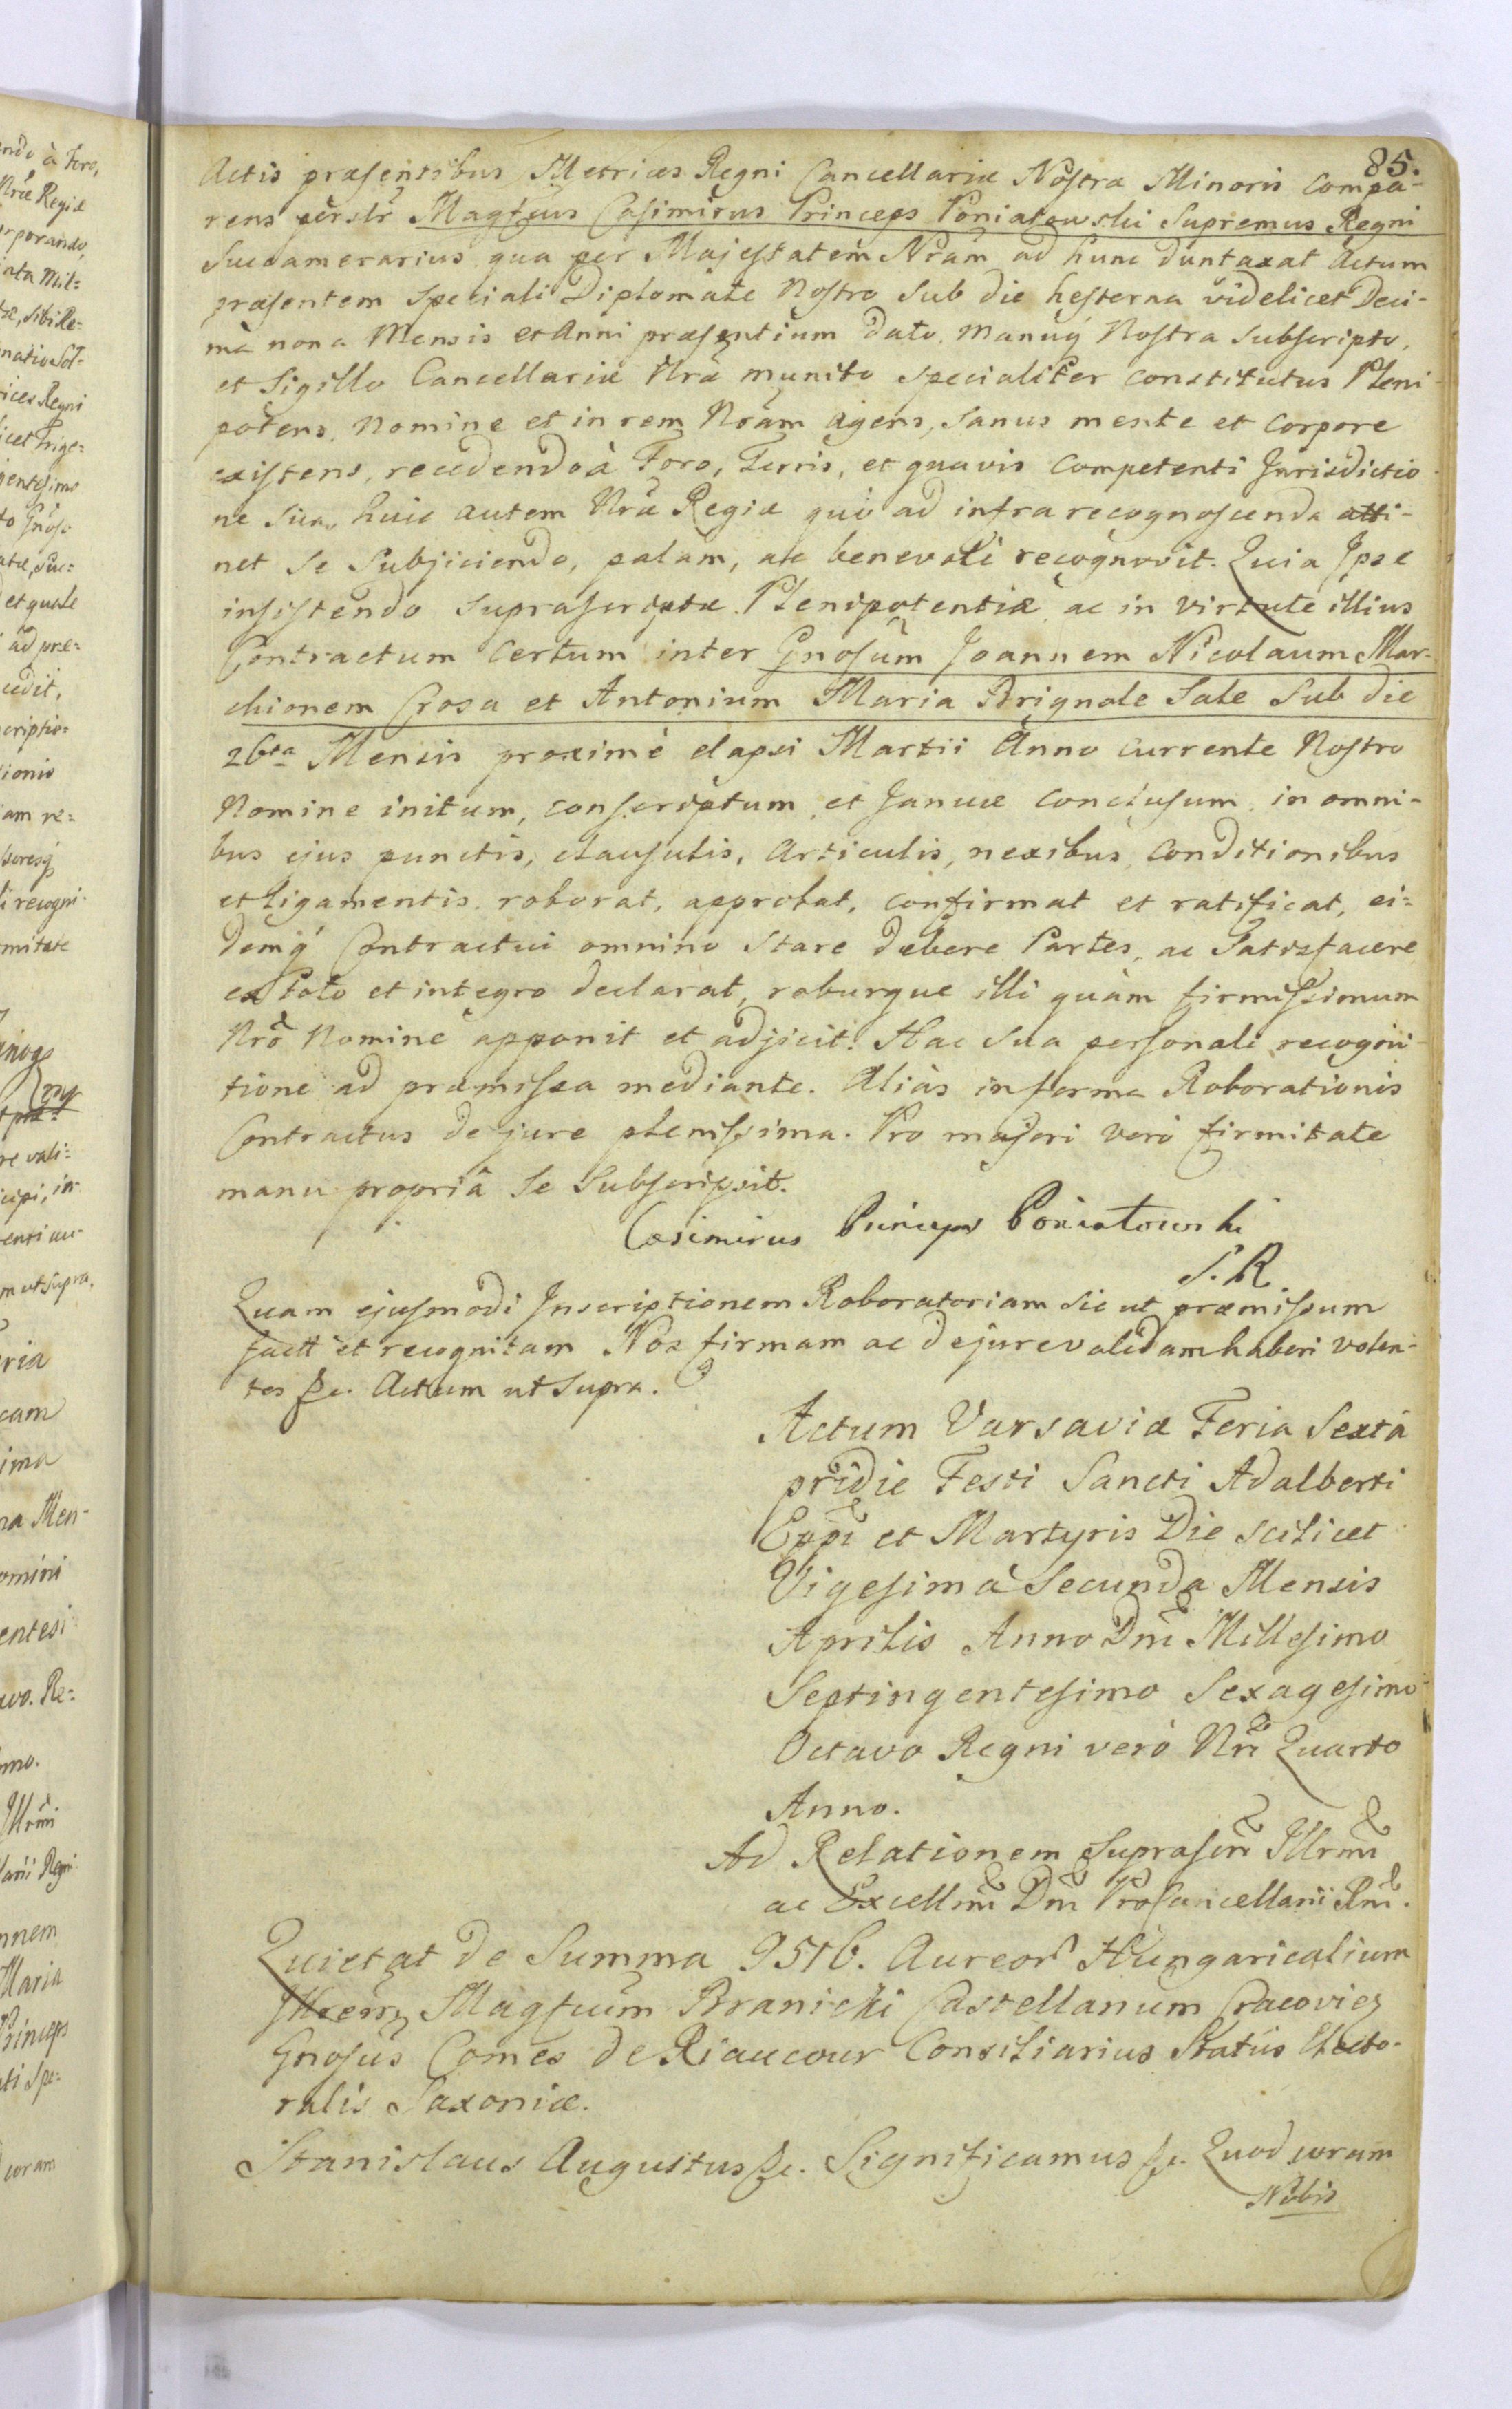 85.
Actis præsentibus Metrices Regni Cancellariæ Nostræ Minoris compa-
rens persl̃r Magfcus Casimirus Princeps Poniatowski Supremus Regni
Succamerarius qua per Majestatem Nrãm ad hunc duntaxat Actum
præsentem speciali Diplomate Nostro sub die hesterna videlicet Deci-
mà nona Mensis et Anni præsentium dato, manuq́ Nostra subscripto,
et Sigillo Cancellariæ Nrã munito specialiter constitutus Pleni-
potens, Nomine et in rem Nrãm agens, sanus mente et corpore
existens, recedendo à Foro, Terris, et quavis Competenti Jurisdictio
ne sua, huic autem Nræ Regiæ quò ad infra recognoscenda atti-
net se subjiciendo, palam, ac benevolè recognovit. Quia Ipse
insistendo suprascriptæ Plenipotentiæ, ac in virtute illius
Contractum certum inter Gnosum Joannem Nicolaum Mar-
chionem Crosa et Antonium Maria Brignole Sale Sub die
26ta Mensis proximè elapsi Martii Anno currente Nostro
Nomine initum, conscriptum, et Januæ conclusum, in omni-
bus ejus punctis, clausulis, Articulis, nexibus, Conditionibus
et ligamentis roborat, approbat, confirmat et ratificat, ei=
demq́ Contractui omnino stare debere Partes, ac Satisfacere
ex toto et integro declarat, roburque illi quàm firmissimum
Nrõ Nomine apponit et adjicit. Hac sua personali recogni-
tione ad præmissa mediante. Aliàs in forma Roborationis
Contractus de jure plenissima. Pro majori verò firmitate
manu propriâ se subscripsit.
Casimirus Princeps Poniatowski
S. R
Quam ejusmodi Inscriptionem Roboratoriam sic ut præmissum
factt et recognitam Nos firmam ac de jure validam haberi volen-
tes &c. Actum ut supra.
Actum Varsaviæ Feria Sextâ
pridie Festi Sancti Adalberti
Eppi et Martyris Die scilicet
Vigesimà Secunda Mensis
Aprilis Anno Dni Millesimo
Septingentesimo Sexagesimo
Octavo Regni verò Nri Quarto
Anno.
Ad Relationem suprascri Illrmi
ac Excellmi Dni ProCancellarii Rni.
Quietat de Summa 9516. Aureor Hungaricalium
Magfcum Branicki Castellanum Cracovien
Gnosus Comes de Riaucour Consiliarius Statûs Electo-
ralis Saxoniæ.
Stanislaus Augustus &c. Significamus &c. Quod coram
Nobis